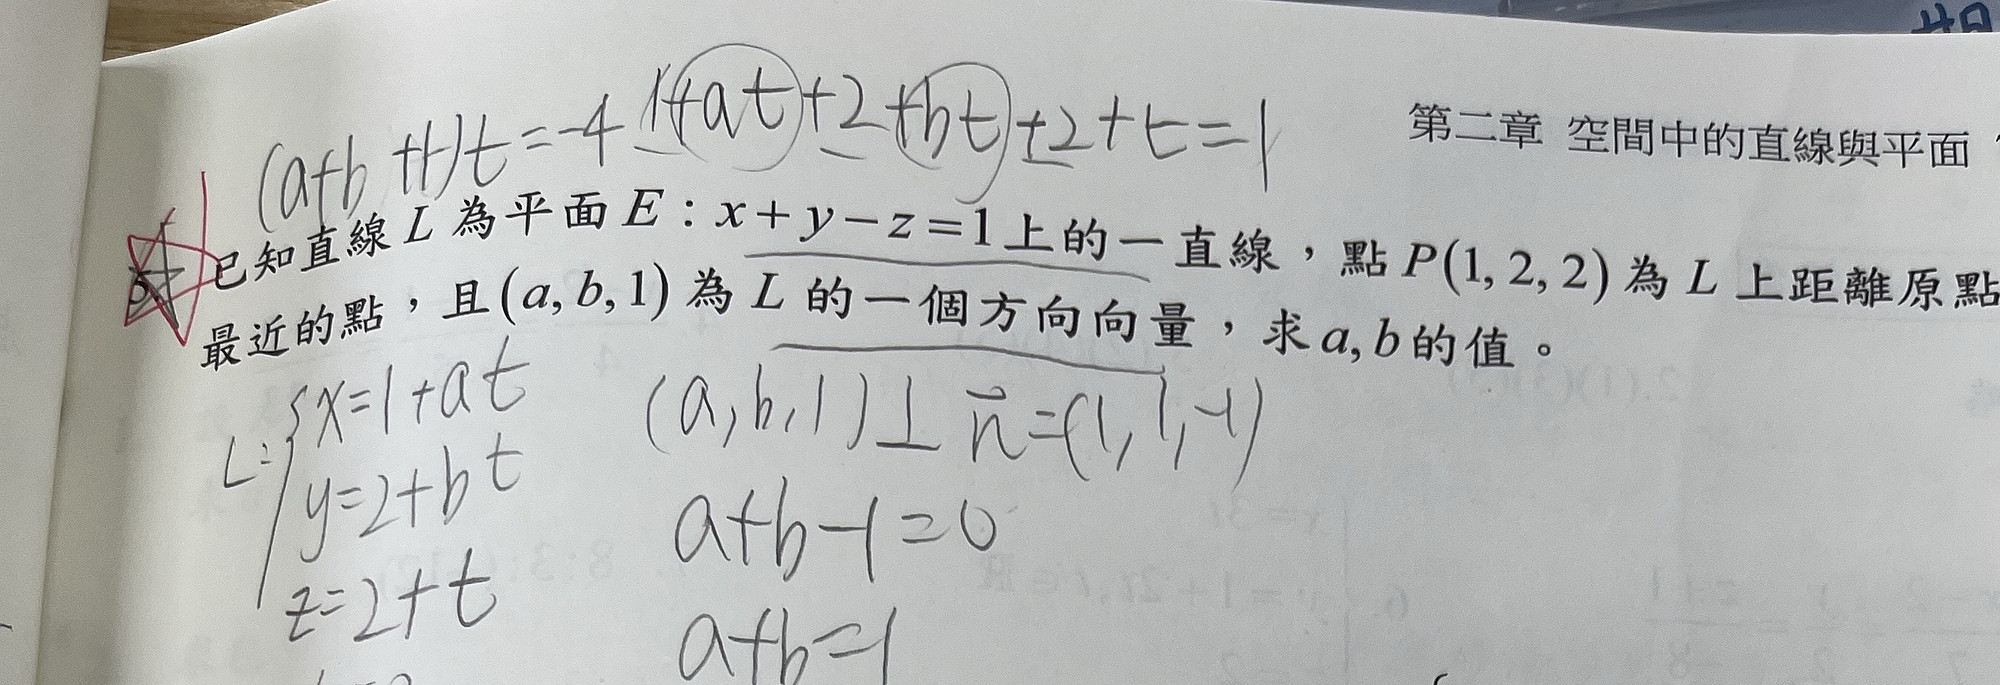 (a+b+1)t=-4
1+at+2+bt+2+t=1
第二章 空間中的直線與平面
已知直線 L 為平面 E：x+y−z=1上的一直線，點 P(1, 2, 2) 為 L 上距離原點
最近的點，且(a, b, 1) 為 L 的一個方向向量，求a, b的值。
L:{x=1+at
y=2+bt
z=2+t
(a,b,1)⊥n⃗=(1,1,-1)
a+b-1=0
a+b=1